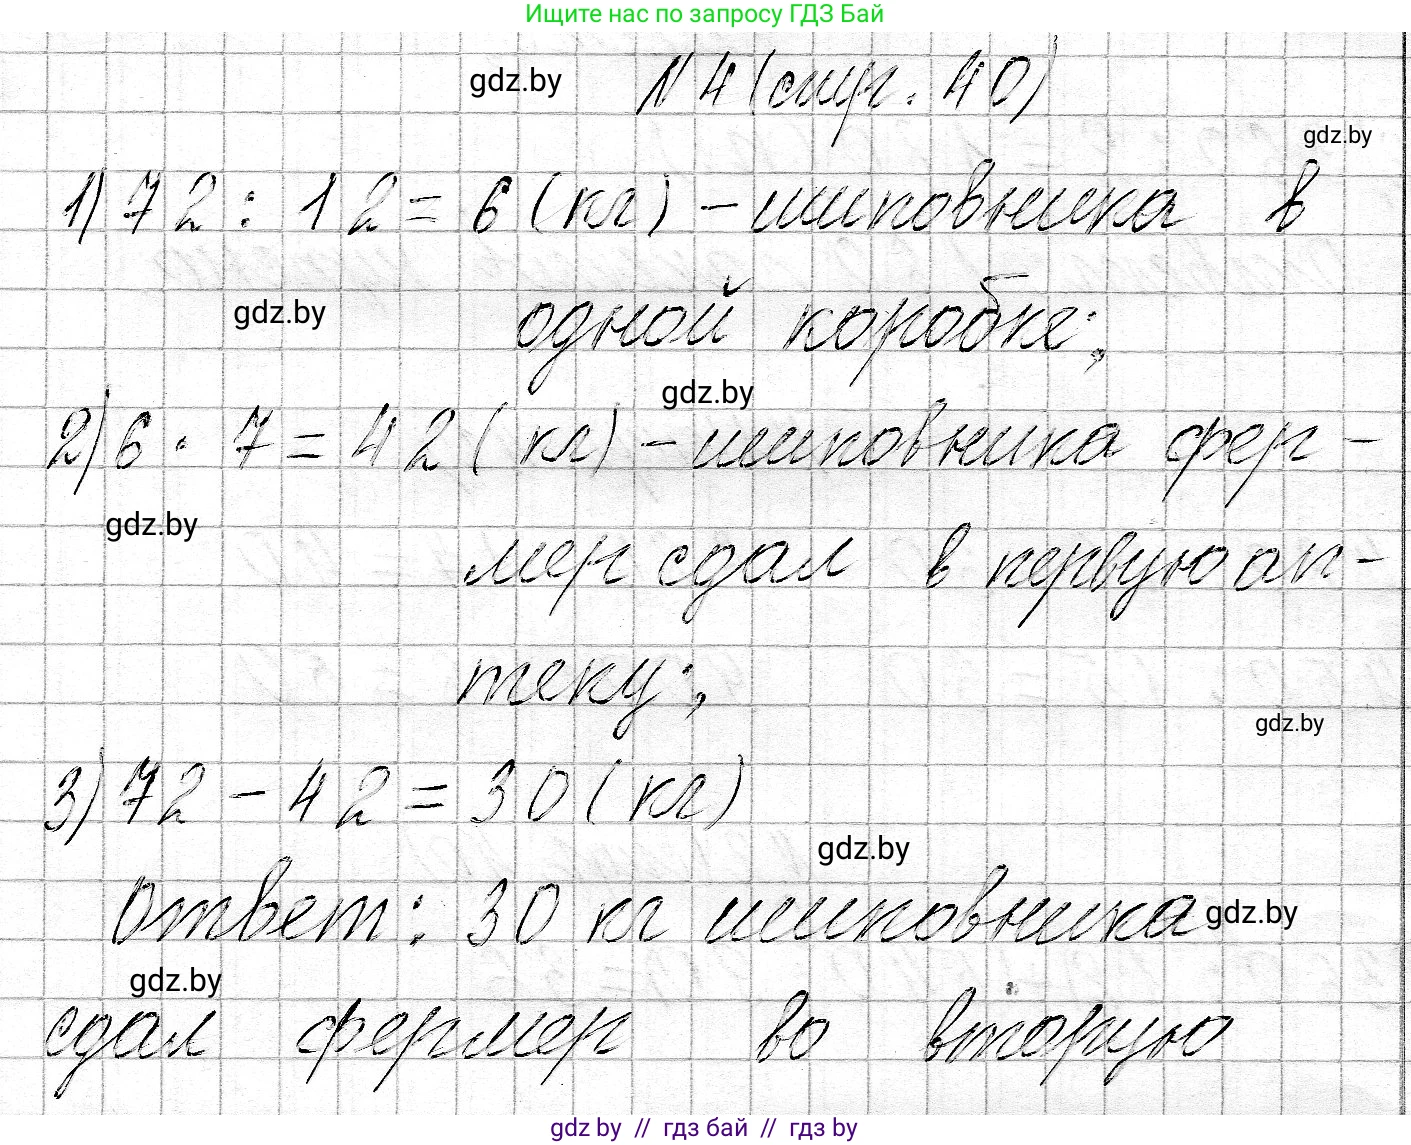 Ищите нас по запросу ГДЗ Бай
gdz.by
N4 (стр. 40)
gdz.by
1) 72 : 12 = 6 (кг) - шиповника в
gdz.by
одной коробке;
gdz.by
2) 6 · 7 = 42 (кг) - шиповника фер-
gdz.by
мер сдал в первую ап-
теку;
gdz.by
3) 72 - 42 = 30 (кг)
gdz.by
Ответ: 30 кг шиповника
gdz.by
gdz.by
сдал фермер во вторую
gdz by // гдз бай // гдз by